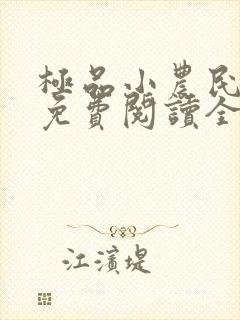 極品小農民
免費閱讀全
江濱堤